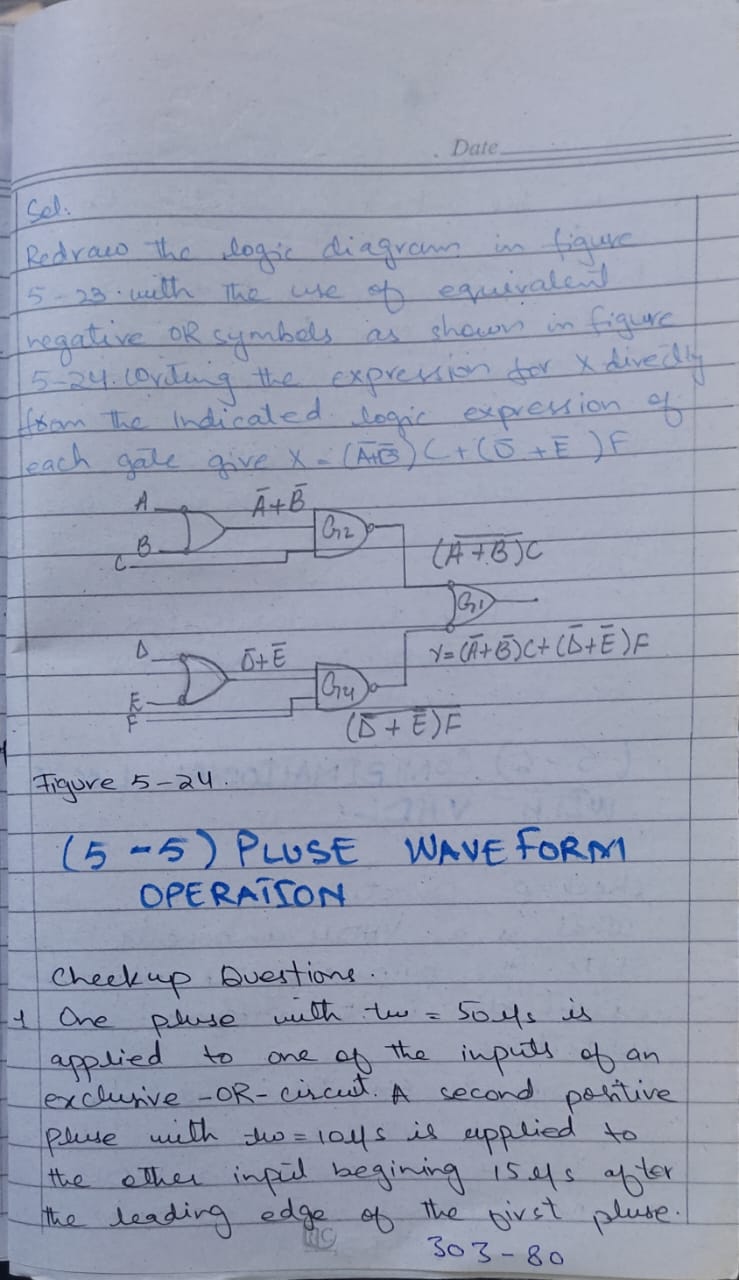 Date
Sol.
Redraw the logic diagram in figure
5-23. with the use of equivalent
negative OR symbols as shown in figure
5-24. Writing the expression for X directly
from the indicated logic expression of
each gate give X = (Ā+B̄)C+(D̄+Ē)F
A Ā+B̄
B G2
C (Ā+B̄)C
G1
D D̄+Ē Y=(Ā+B̄)C+(D̄+Ē)F
E G4
F (D̄+Ē)F
Figure 5-24.
(5-5) PLUSE WAVE FORM
OPERATION
Checkup Questions.
1 One pluse with tw = 50 µs is
applied to one of the inputs of an
exclusive -OR- circuit. A second positive
pluse with tw = 10 µs is applied to
the other input begining 15 µs after
the leading edge of the first pluse.
303-80